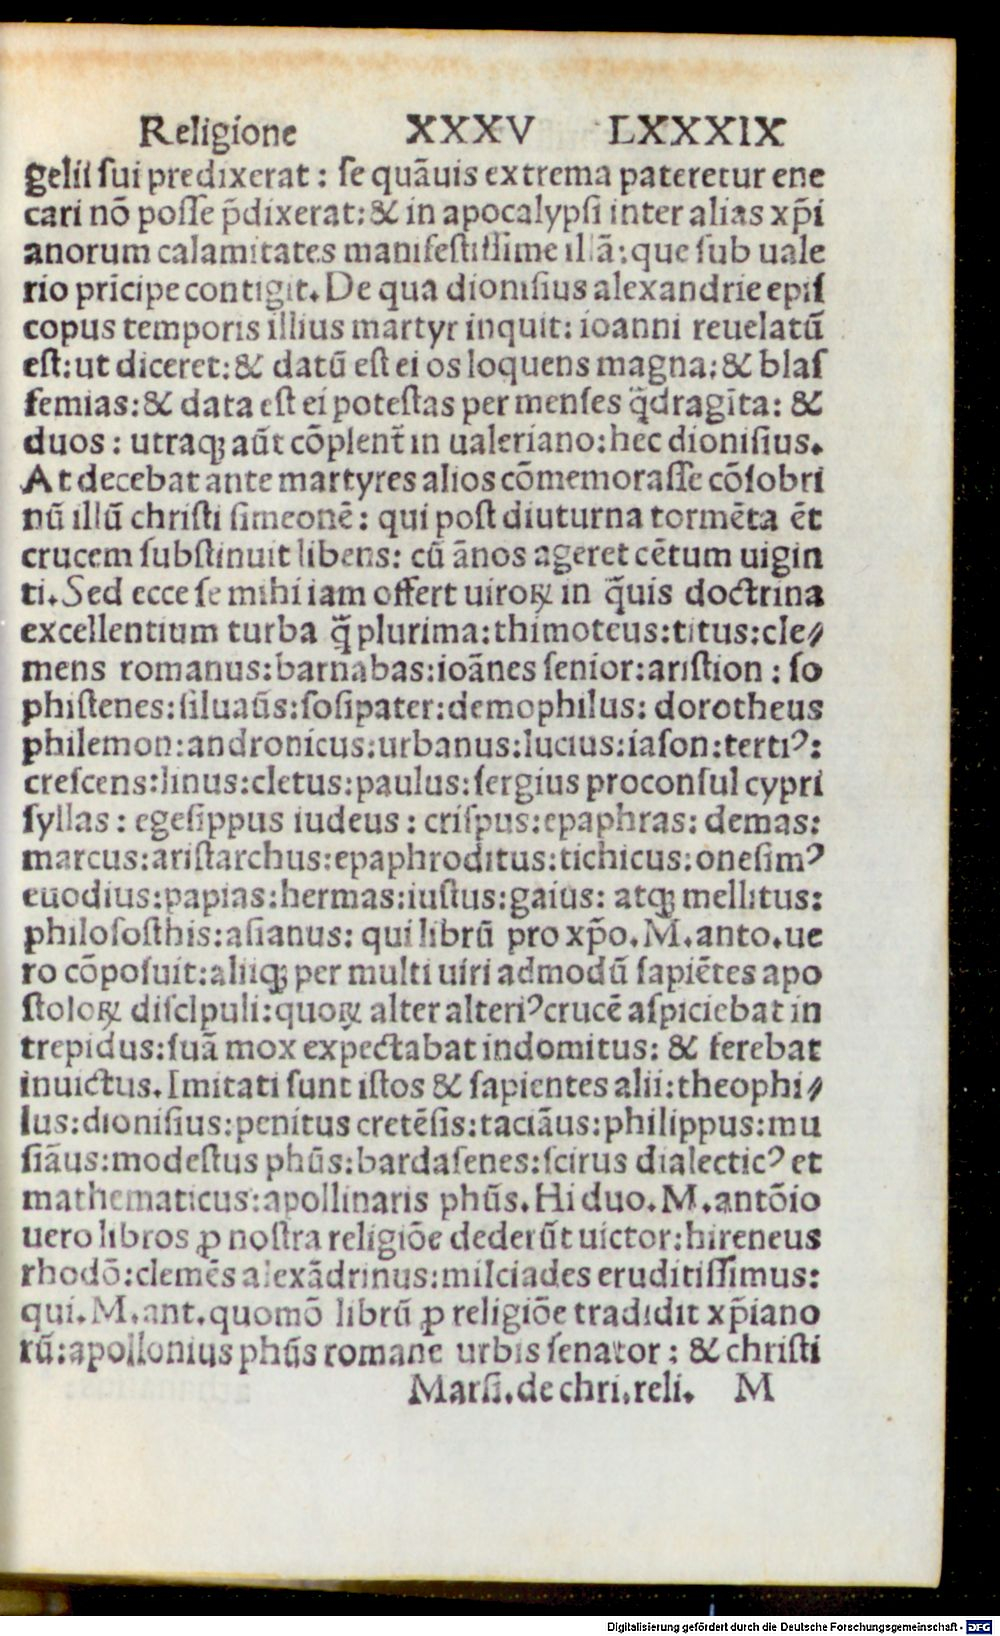 Religione XXXV LXXXIX
gelii ſui predixerat : ſe quãuis extrema pateretur ene
cari nõ poſſe p̃dixerat: & in apocalypſi inter alias xp̃i
anorum calamitates manifeſtiſſime illã: que ſub uale
rio pr̃icipe contigit. De qua dioniſius alexandrie epiſ
copus temporis illius martyr inquit: ioanni reuelatũ
eſt: ut diceret: & datũ eſt ei os loquens magna: & blaſ
femias: & data eſt ei poteſtas per menſes q̃dragĩta: &
duos : utraqꝫ aũt cõplent̃ in ualeriano: hec dioniſius.
At decebat ante martyres alios cõmemoraſſe cõſobri
nũ illũ chriſti ſimeonẽ : qui poſt diuturna tormẽta ẽt
crucem ſubſtinuit libens: cũ ãnos ageret cẽtum uigin
ti. Sed ecce ſe mihi iam offert uiroꝝ in q̃uis doctrina
excellentium turba q̃ plurima: thimoteus: titus: cle⸗
mens romanus: barnabas: ioãnes ſenior: ariſtion : ſo
phiſtenes: ſiluaũs: ſoſipater: demophilus: dorotheus
philemon: andronicus: urbanus: lucius: iaſon: tertiꝰ:
creſcens: linus: cletus: paulus: ſergius proconſul cypri
ſyllas : egeſippus iudeus : criſpus: epaphras: demas:
marcus: ariſtarchus: epaphroditus: tichicus: oneſimꝰ
euodius: papias: hermas: iuſtus: gaius: atqꝫ mellitus:
philoſoſthis: aſianus: qui librũ pro xp̃o. M. anto. ue
ro cõpoſuit: aliiqꝫ per multi uiri admodũ ſapiẽtes apo
ſtoloꝝ diſclpuli: quoꝝ alter alteriꝰ crucẽ aſpiciebat in
trepidus: ſuã mox expectabat indomitus: & ferebat
inuictus. Imitati ſunt iſtos & ſapientes alii: theophi⸗
lus: dioniſius: penitus cretẽſis: taciãus: philippus: mu
ſiãus: modeſtus phũs: bardaſenes: ſcirus dialecticꝰ et
mathematicus: apollinaris phũs. Hi duo. M. antõio
uero libros ꝓ noſtra religiõe dederũt uictor: hireneus
rhodõ: clemẽs alexãdrinus: milciades eruditiſſimus:
qui. M. ant. quomõ librũ ꝓ religiõe tradidit xp̃iano
rũ: apollonius phũs romane urbis ſenator : & chriſti
Marſi. de chri. reli. M
Digitalisierung gefördert durch die Deutsche Forschungsgemeinschaft - DFG